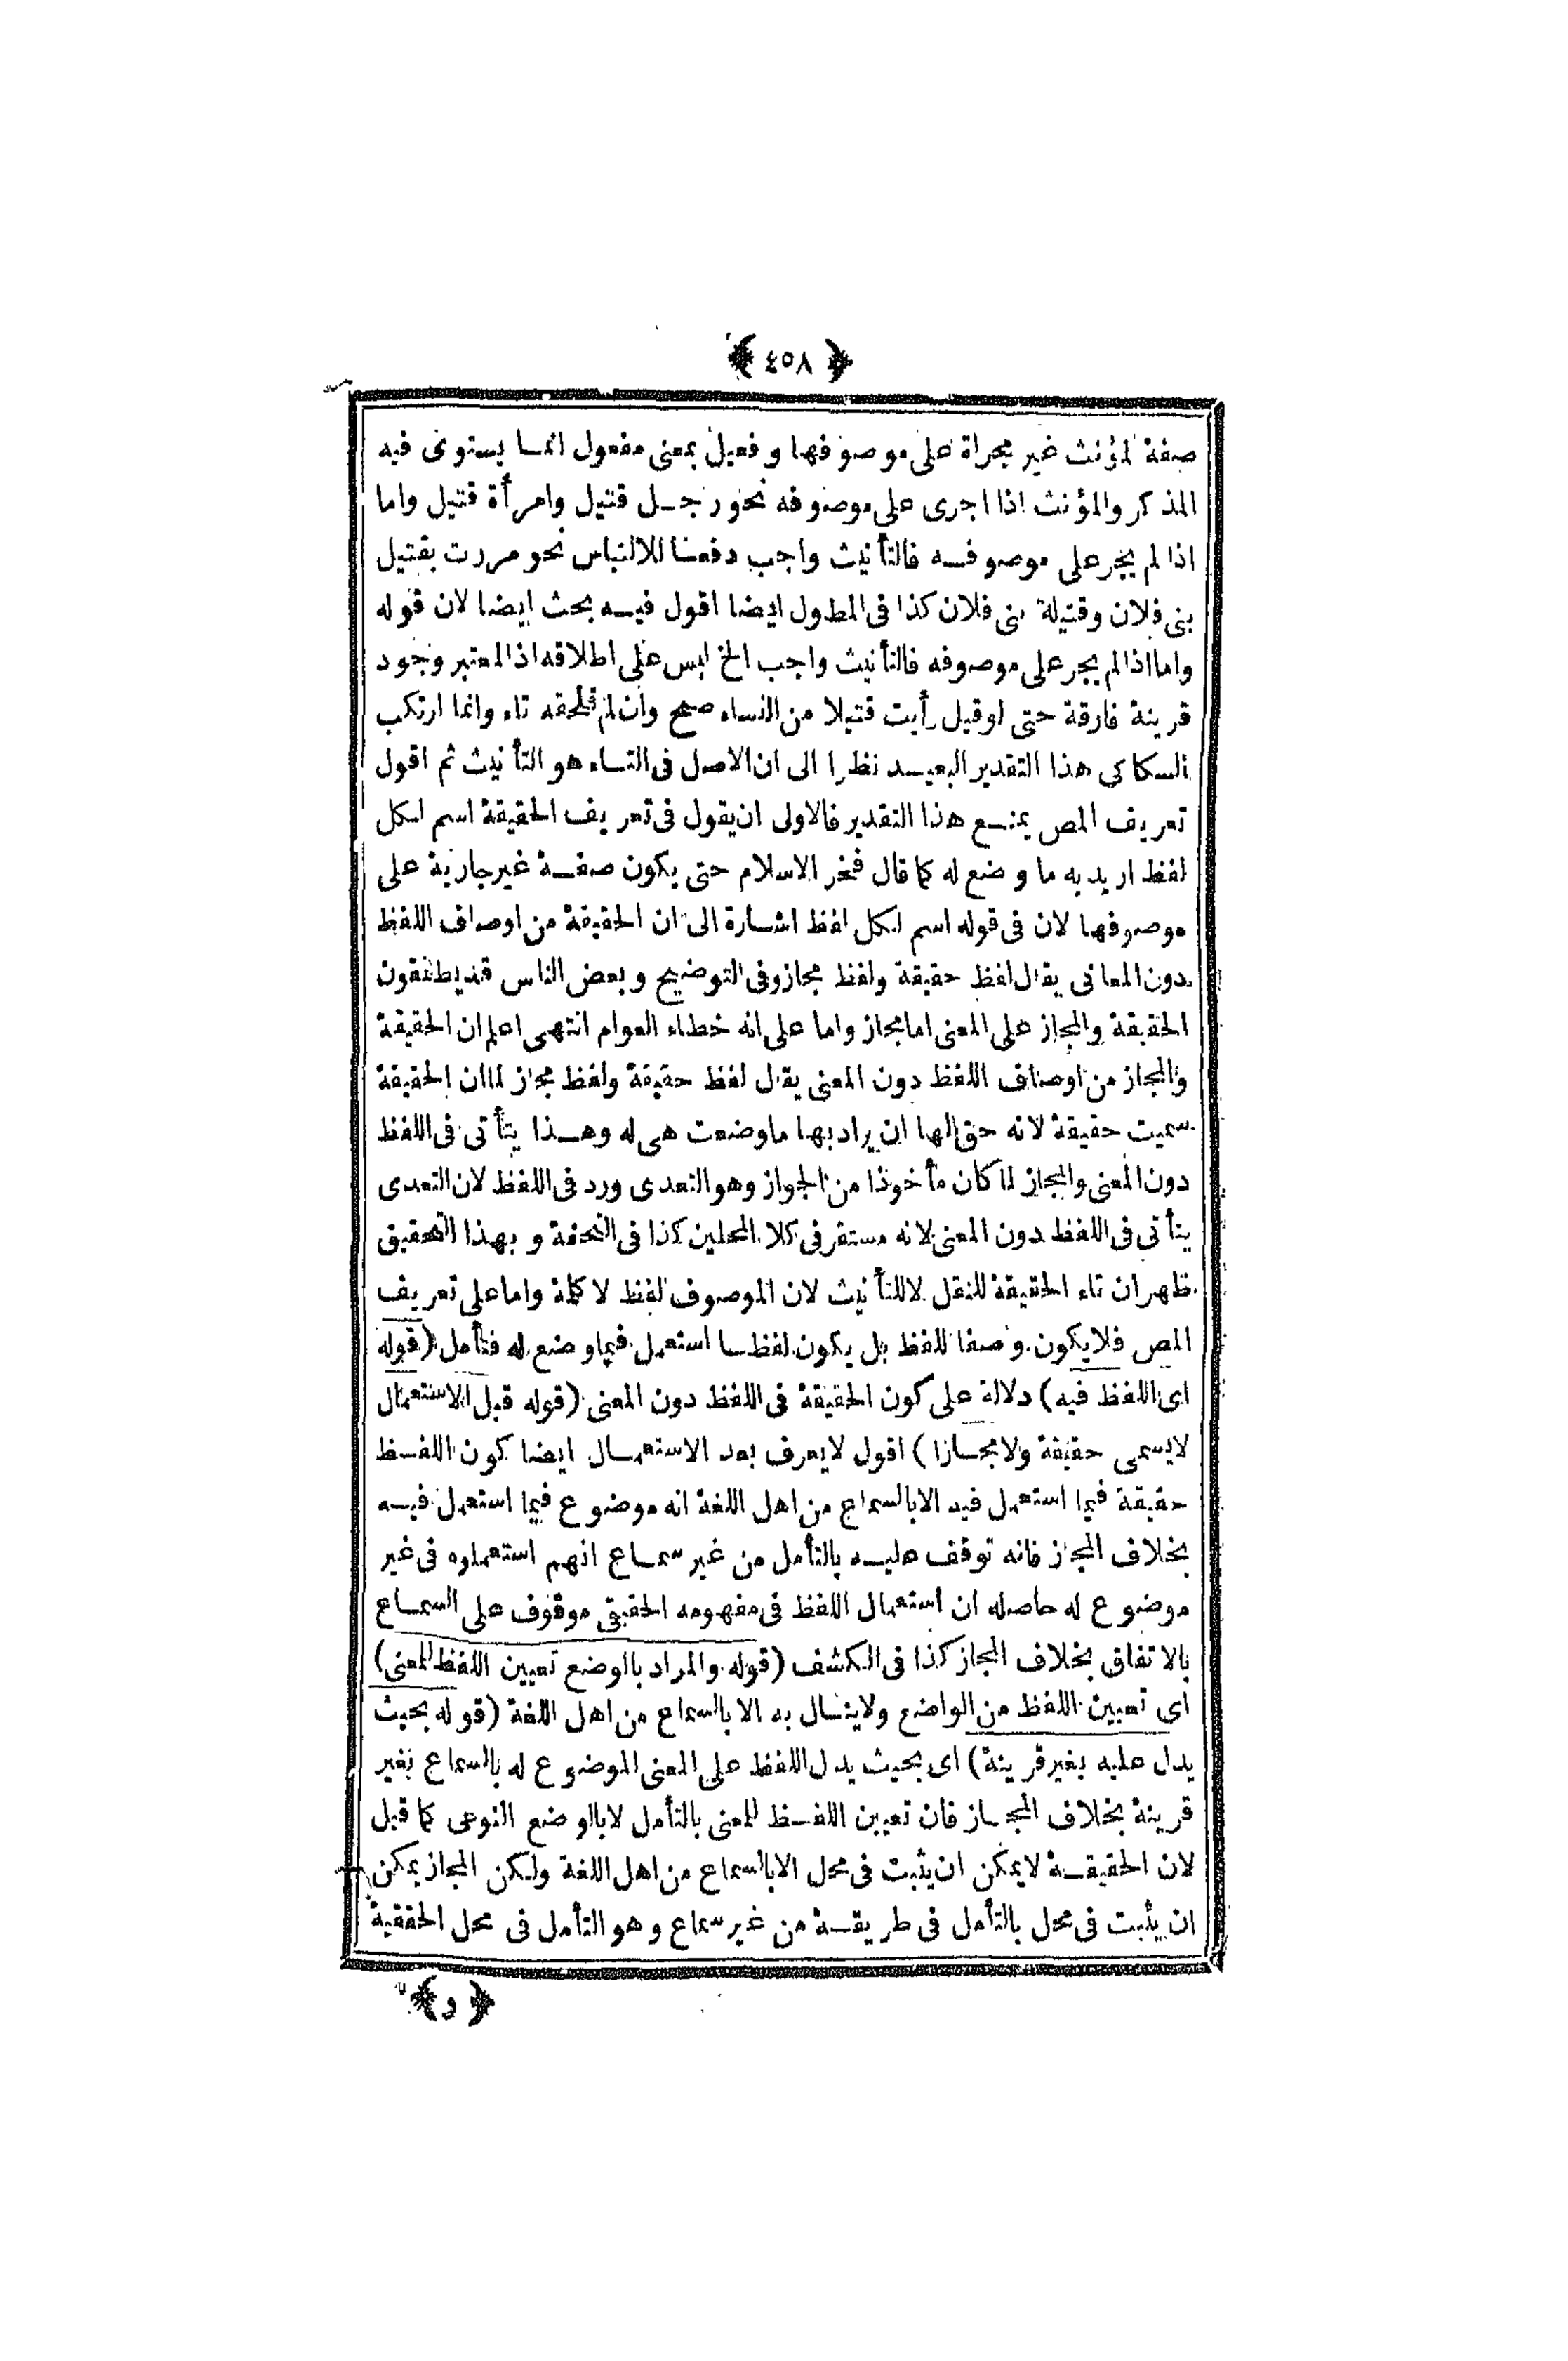 ﴿ ٤٥٨ ﴾
صفة لمؤنث غير مجراة على موصوفها وفعيل بمعنى مفعول انما يستوى فيه
المذكر والمؤنث اذا اجرى على موصوفه نحو رجل قتيل وامرأة قتيل واما
اذا لم يجر على موصوفه فالتأنيث واجب دفعا للالتباس نحو مررت بقتيل
بنى فلان وقتيلة بنى فلان كذا فى المطول ايضا اقول فيه بحث ايضا لان قوله
واما اذا لم يجر على موصوفه فالتأنيث واجب الخ ليس على اطلاقه اذ المعتبر وجود
قرينة فارقة حتى لو قيل رأيت قتيلا من النساء صح وان لم تلحقه تاء وانما ارتكب
السكاكى هذا التقدير البعيد نظرا الى ان الاصل فى التاء هو التأنيث ثم اقول
تعريف المص يمنع هذا التقدير فالاولى ان يقول فى تعريف الحقيقة اسم لكل
لفظ اريد به ما وضع له كما قال فخر الاسلام حتى يكون صفة غير جارية على
موصوفها لان فى قوله اسم لكل لفظ اشارة الى ان الحقيقة من اوصاف اللفظ
دون المعانى يقال لفظ حقيقة ولفظ مجاز وفى التوضيح وبعض الناس قد يطلقون
الحقيقة والمجاز على المعنى اما مجاز واما على انه خطاء العوام انتهى اعلم ان الحقيقة
والمجاز من اوصاف اللفظ دون المعنى يقال لفظ حقيقة ولفظ مجاز لما ان الحقيقة
سميت حقيقة لانه حق لها ان يراد بها ما وضعت هى له وهذا يتأتى فى اللفظ
دون المعنى والمجاز لما كان مأخوذا من الجواز وهو التعدى ورد فى اللفظ لان التعدى
يتأتى فى اللفظ دون المعنى لانه مستقر فى كلا المحلين كذا فى التحفة وبهذا التحقيق
ظهر ان تاء الحقيقة للنقل لا للتأنيث لان الموصوف لفظ لا كلمة واما على تعريف
المص فلا يكون وصفا للفظ بل يكون لفظا استعمل فيما وضع له فتأمل (قوله
اى اللفظ فيه) دلالة على كون الحقيقة فى اللفظ دون المعنى (قوله قبل الاستعمال
لا يسمى حقيقة ولا مجازا) اقول لا يعرف بعد الاستعمال ايضا كون اللفظ
حقيقة فيما استعمل فيه الا بالسماع من اهل اللغة انه موضوع فيما استعمل فيه
بخلاف المجاز فانه توقف عليه بالتأمل من غير سماع انهم استعملوه فى غير
موضوع له حاصله ان استعمال اللفظ فى مفهومه الحقيقى موقوف على السماع
بالاتفاق بخلاف المجاز كذا فى الكشف (قوله والمراد بالوضع تعيين اللفظ للمعنى)
اى تعيين اللفظ من الواضع ولا ينال به الا بالسماع من اهل اللغة (قوله بحيث
يدل عليه بغير قرينة) اى بحيث يدل اللفظ على المعنى الموضوع له بالسماع بغير
قرينة بخلاف المجاز فان تعيين اللفظ للمعنى بالتأمل لا بالوضع النوعى كما قيل
لان الحقيقة لا يمكن ان يثبت فى محل الا بالسماع من اهل اللغة ولكن المجاز يمكن
ان يثبت فى محل بالتأمل فى طريقة من غير سماع وهو التأمل فى محل الحقيقة
﴿ و ﴾